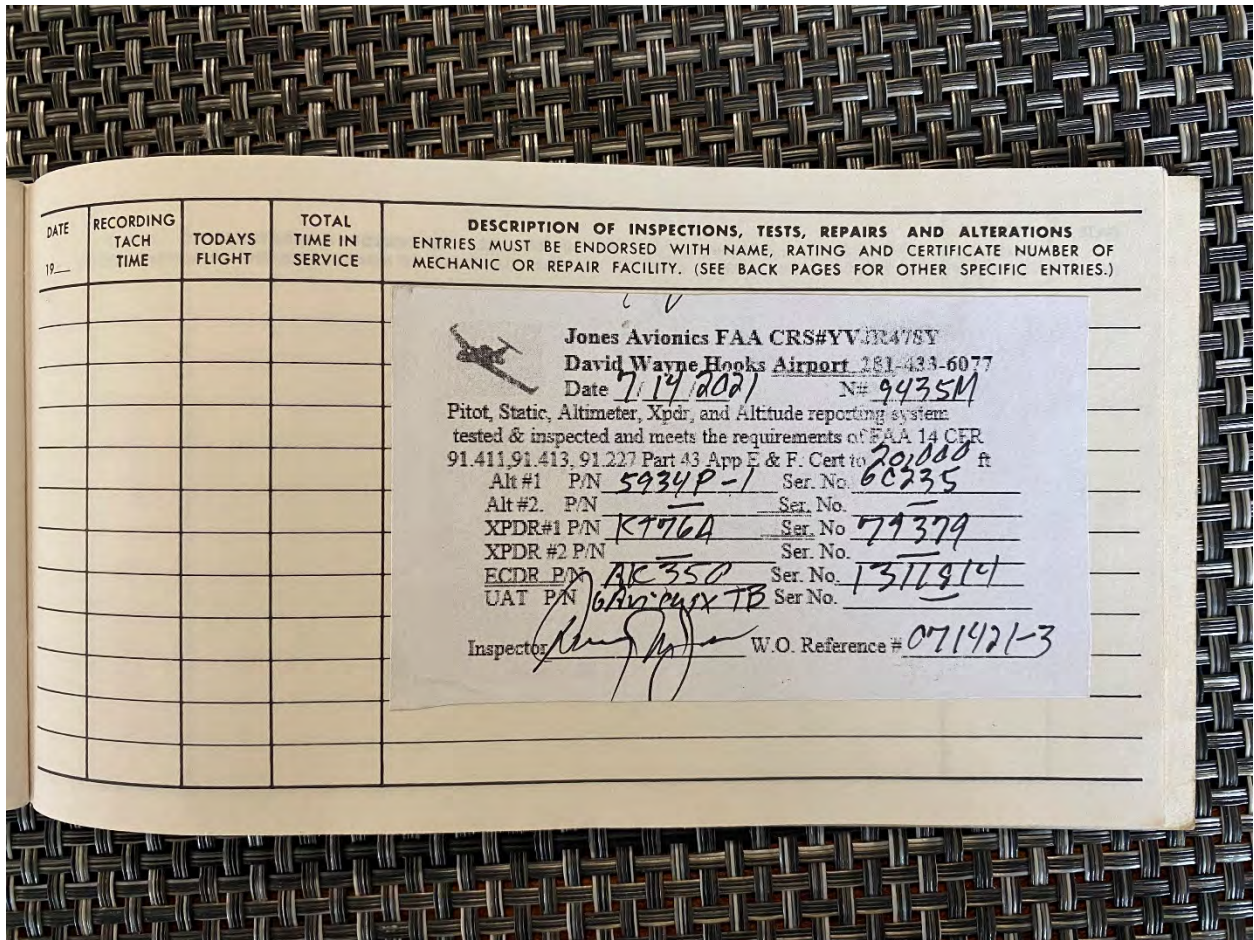 DATE
19__
RECORDING
TACH
TIME
TODAYS
FLIGHT
TOTAL
TIME IN
SERVICE
DESCRIPTION OF INSPECTIONS, TESTS, REPAIRS AND ALTERATIONS
ENTRIES MUST BE ENDORSED WITH NAME, RATING AND CERTIFICATE NUMBER OF
MECHANIC OR REPAIR FACILITY. (SEE BACK PAGES FOR OTHER SPECIFIC ENTRIES.)
Jones Avionics FAA CRS#YVJR478Y
David Wayne Hooks Airport 281-433-6077
Date 7/14/2021 N# 9435M
Pitot, Static, Altimeter, Xpdr, and Altitude reporting system
tested & inspected and meets the requirements of FAA 14 CFR
91.411,91.413, 91.227 Part 43 App E & F. Cert to 20,000 ft
Alt #1 P/N 5934P-1 Ser. No. 6C235
Alt #2. P/N — Ser. No. —
XPDR#1 P/N KT76A Ser. No 79379
XPDR #2 P/N — Ser. No. —
ECDR P/N AK350 Ser. No.
UAT P/N Ser No. —
Inspector W.O. Reference # 071421-3